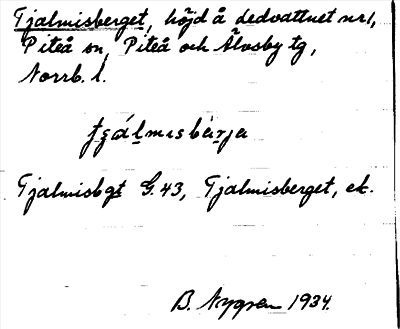 Tjalmisberget, höjd å Ledvattnet nr 1,
Piteå sn, Piteå och Älvsby tg,
Norrb. l.
Tjalmisbgt G. 43, Tjalmisberget, ek.
B. Nygren 1934.